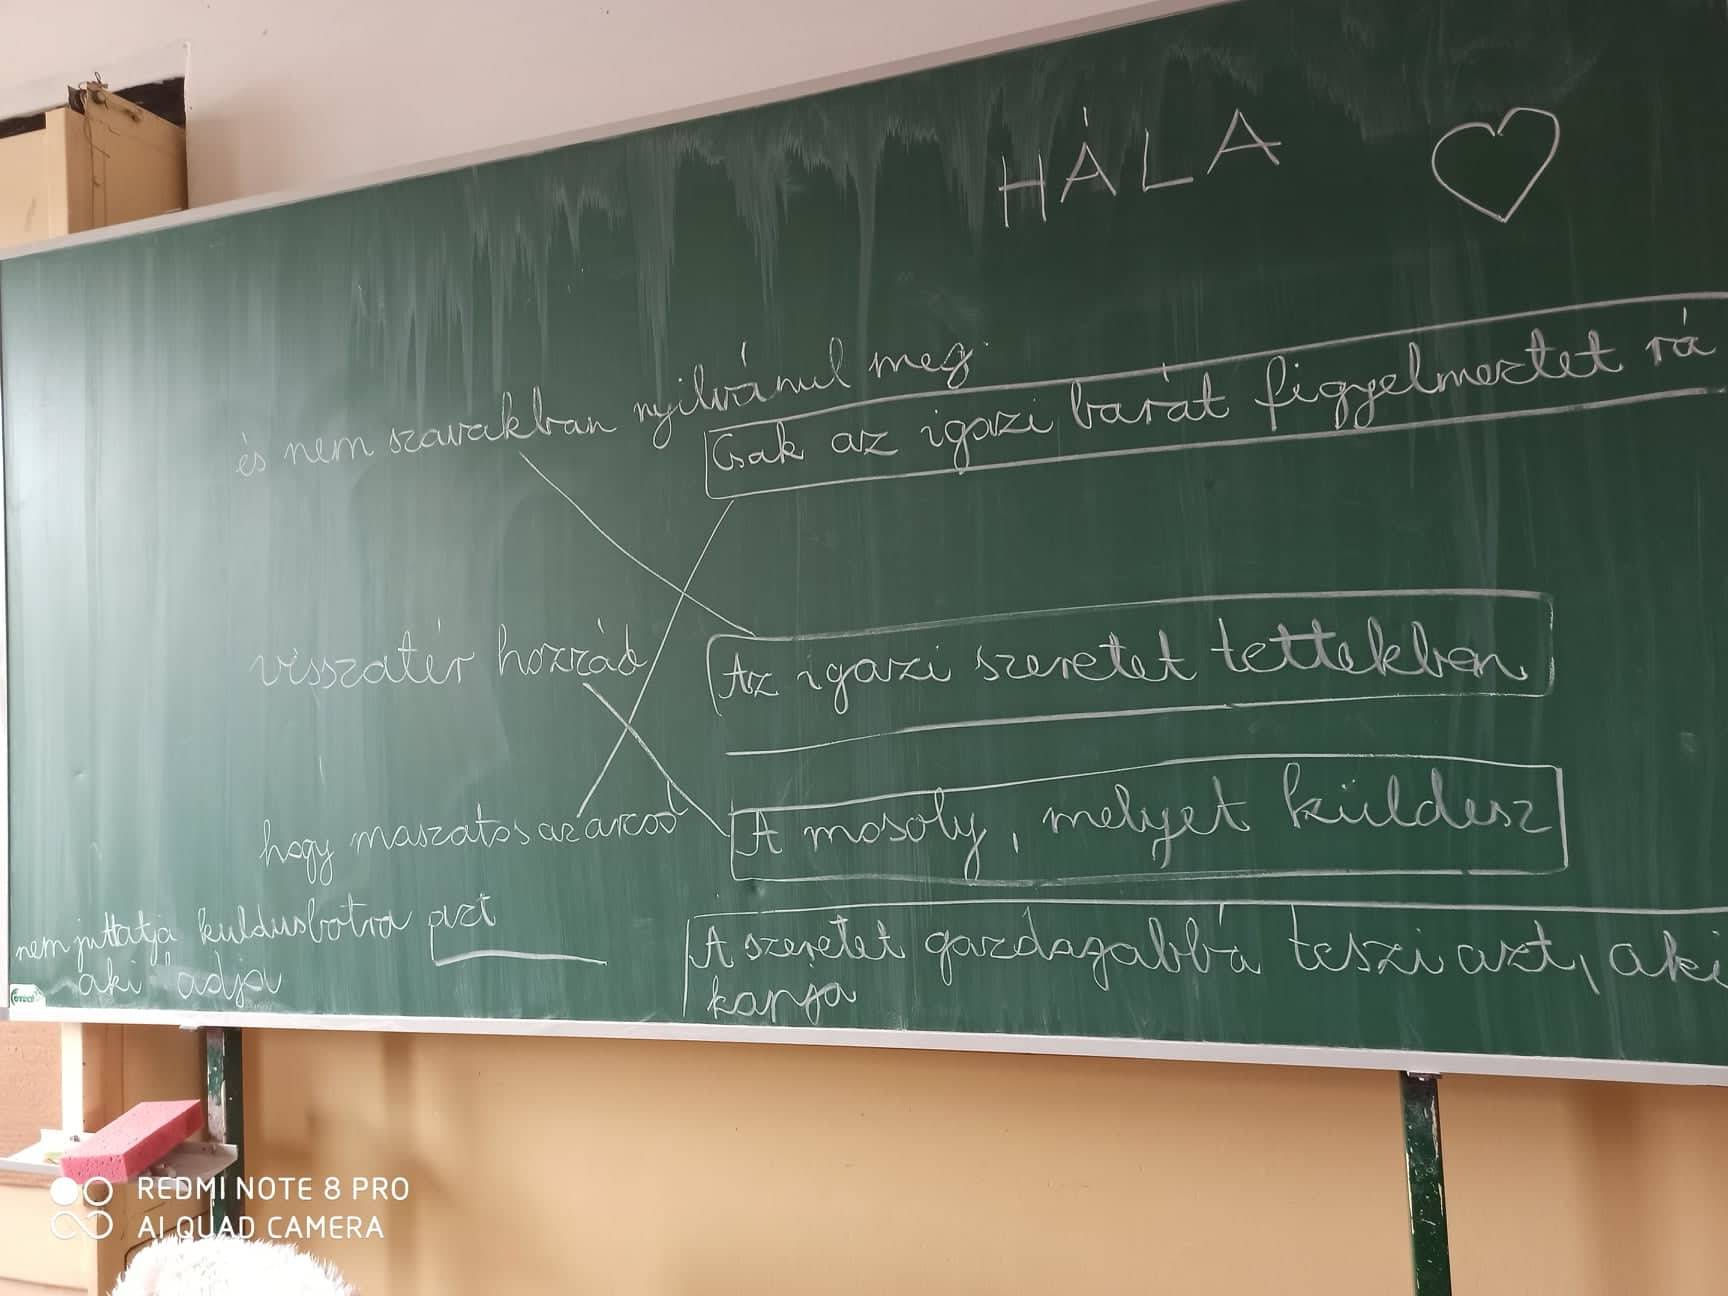 HÁLA
és nem szavakban nyilvánul meg.
Csak az igazi barát figyelmeztet rá
visszatér hozzád
Az igazi szeretet tettekben
hogy maszatos az arcod
A mosoly, melyet küldesz
nem juttatja kuldusbotra azt
aki adja
A szeretet gazdagabbá teszi azt, aki
kapja
REDMI NOTE 8 PRO
AI QUAD CAMERA